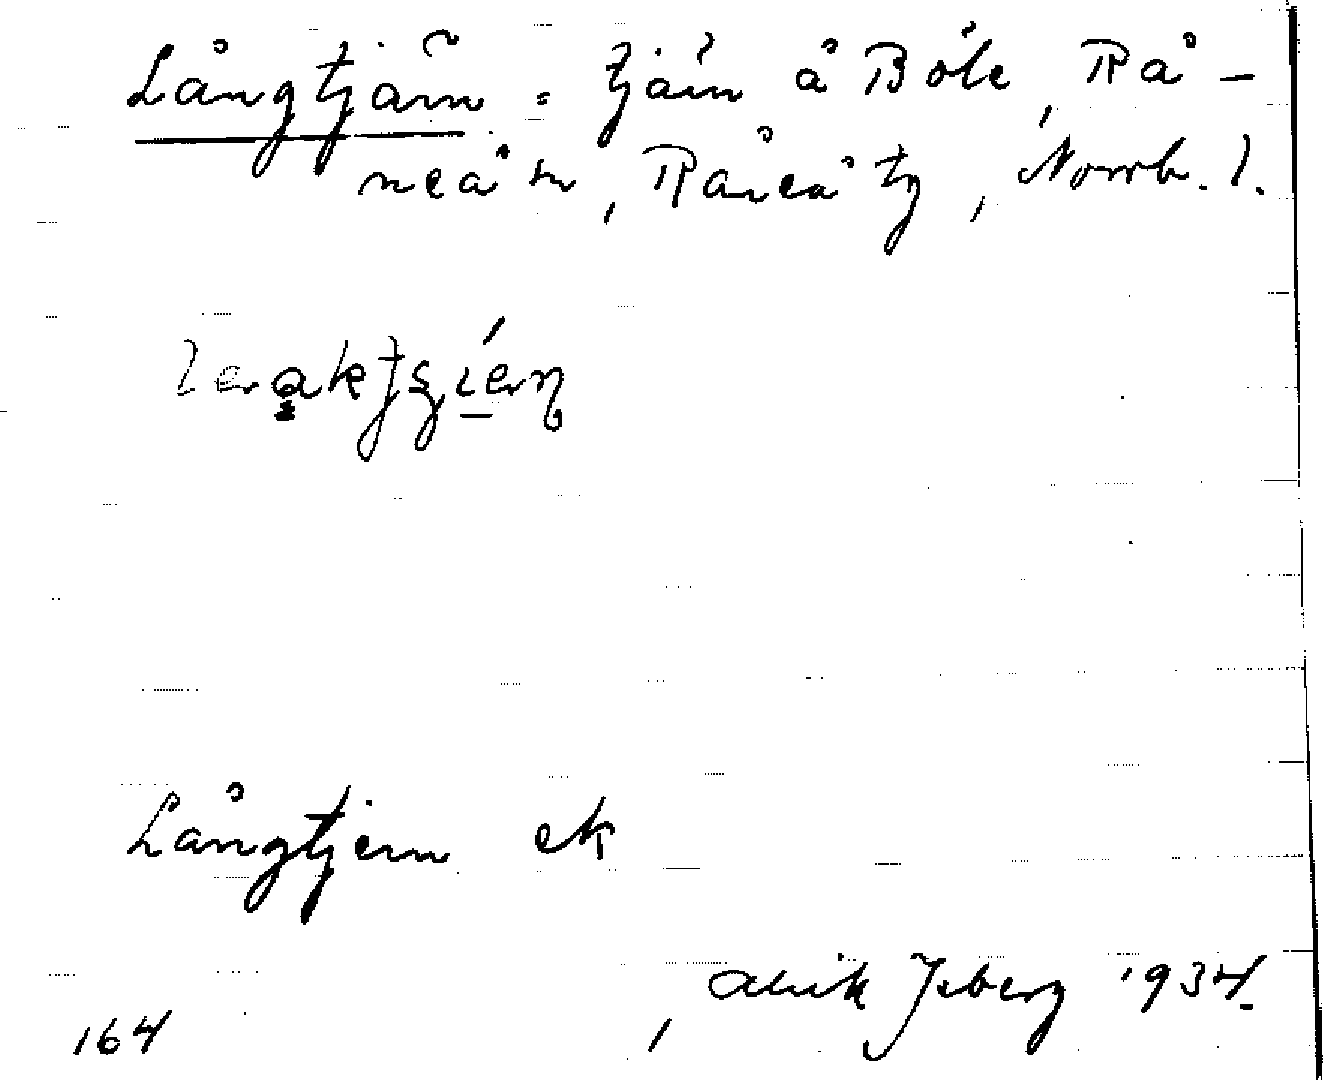 Långtjärn : tjärn å Böle, Rå-
neå sn, Råneå tg, Norrb. l.
Långtjern ek
Alrik Isberg 1934.
164